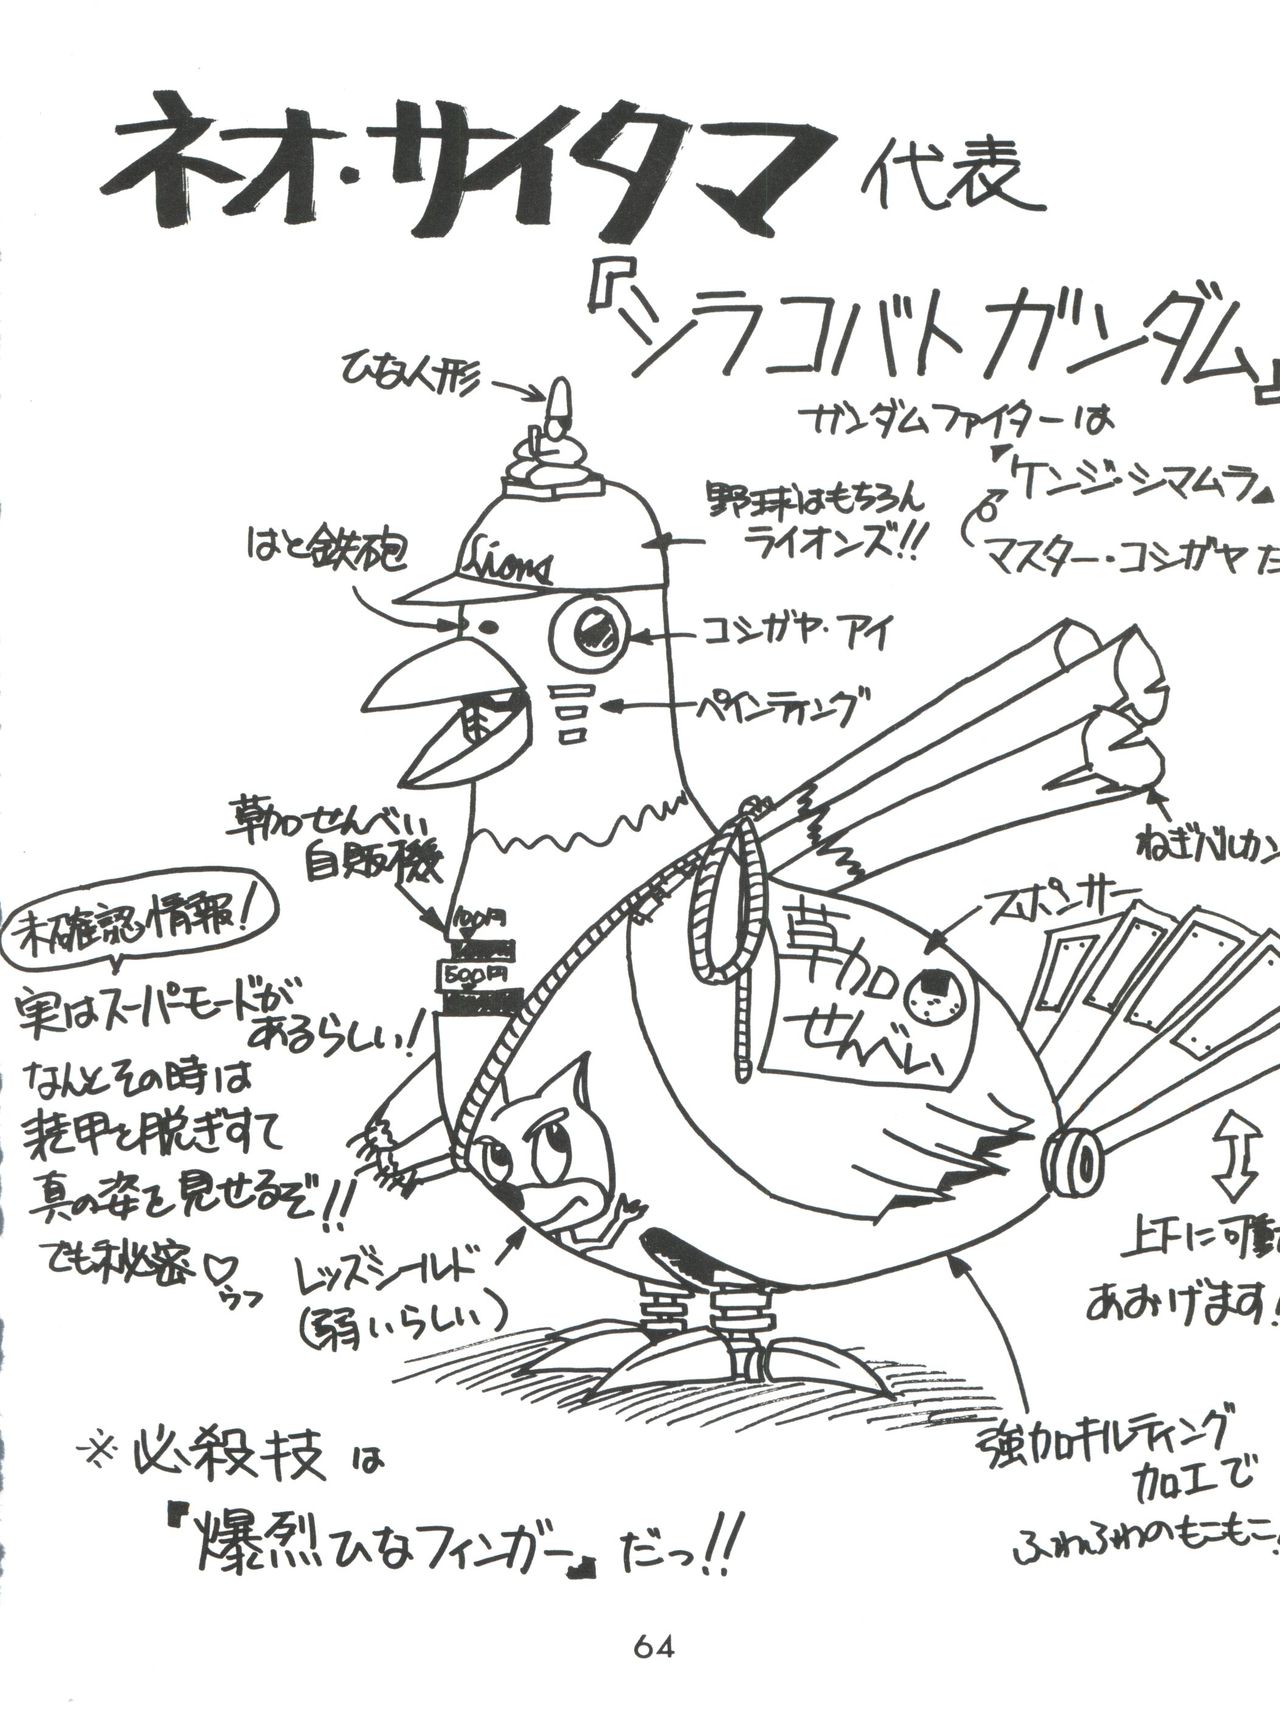 ネオ・サイタマ 代表
『シラコバトガンダム』
ガンダムファイターは
『ケンジ・シマムラ』
マスター・コシガヤだ
ひな人形
はと鉄砲
野球はもちろん
ライオンズ!!
Lions
コシガヤ・アイ
ペインティング
ねぎバルカン
草加せんべい
自販機
100円
500円
スポンサー
草加
せんべい
未確認情報!
実はスーパーモードが
あるらしい!
なんとその時は
装甲を脱ぎすて
真の姿を見せるぞ!!
でも秘密♡
ウフ
レッズシールド
(弱いらしい)
上下に可動
あおげます!
強加キルティング
加工で
ふわふわのもこもこ!
※必殺技は
『爆烈ひなフィンガー』だっ!!
64